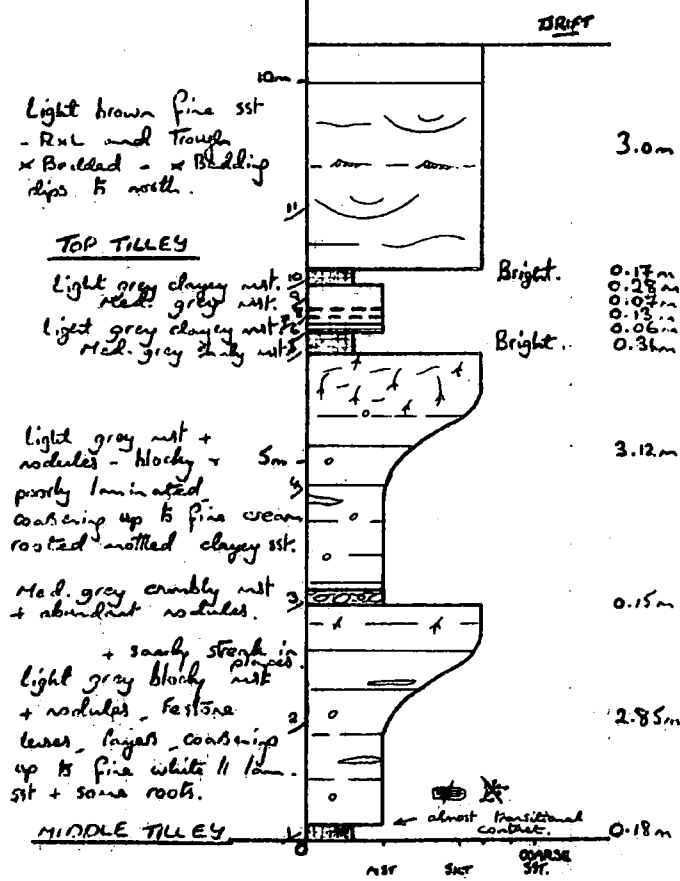 DRIFT
10m
Light brown fine sst
- RXL and Trough
x Bedded - x Bedding
dips to north.
3.0m
11
TOP TILLEY
10
Light grey clayey mst.
Bright.
0.17m
9
Med. grey mst.
0.28m
8
0.07m
7
0.13m
Light grey clayey mst
6
0.06m
Med. grey mst
5
Bright.
0.36m
Light grey mst +
nodules - blocky +
5m
3.12m
4
poorly laminated
coarsening up to fine cream
rooted mottled clayey sst.
Med. grey crumbly mst
3
+ abundant nodules.
0.15m
+ sandy streak in
places.
Light grey blocky mst
+ nodules Festone
2
2.85m
lenses, layers, coarsening
up to fine white || lam.
sst + some roots.
almost transitional
contact.
MIDDLE TILLEY
1
0.18m
0
MST SLT COARSE
SST.